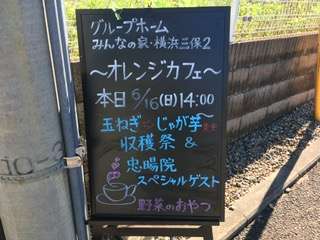 グループホーム
みんなの家・横浜三保2
～オレンジカフェ～
本日6/16(日)14:00～
玉ねぎ じゃが芋
収穫祭 &
忠暘院
スペシャルゲスト
野菜のおやつ